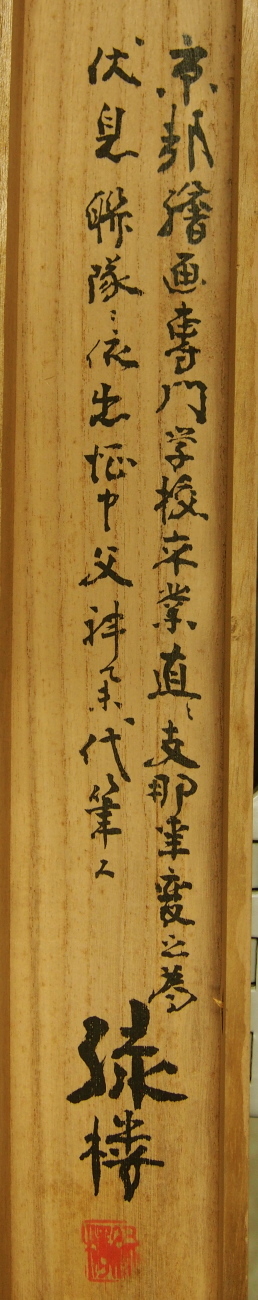 京都繪画專門学校卒業直ニ支那事変之為
伏見聯隊ニ依出征中父神泉代筆ス
緑樓